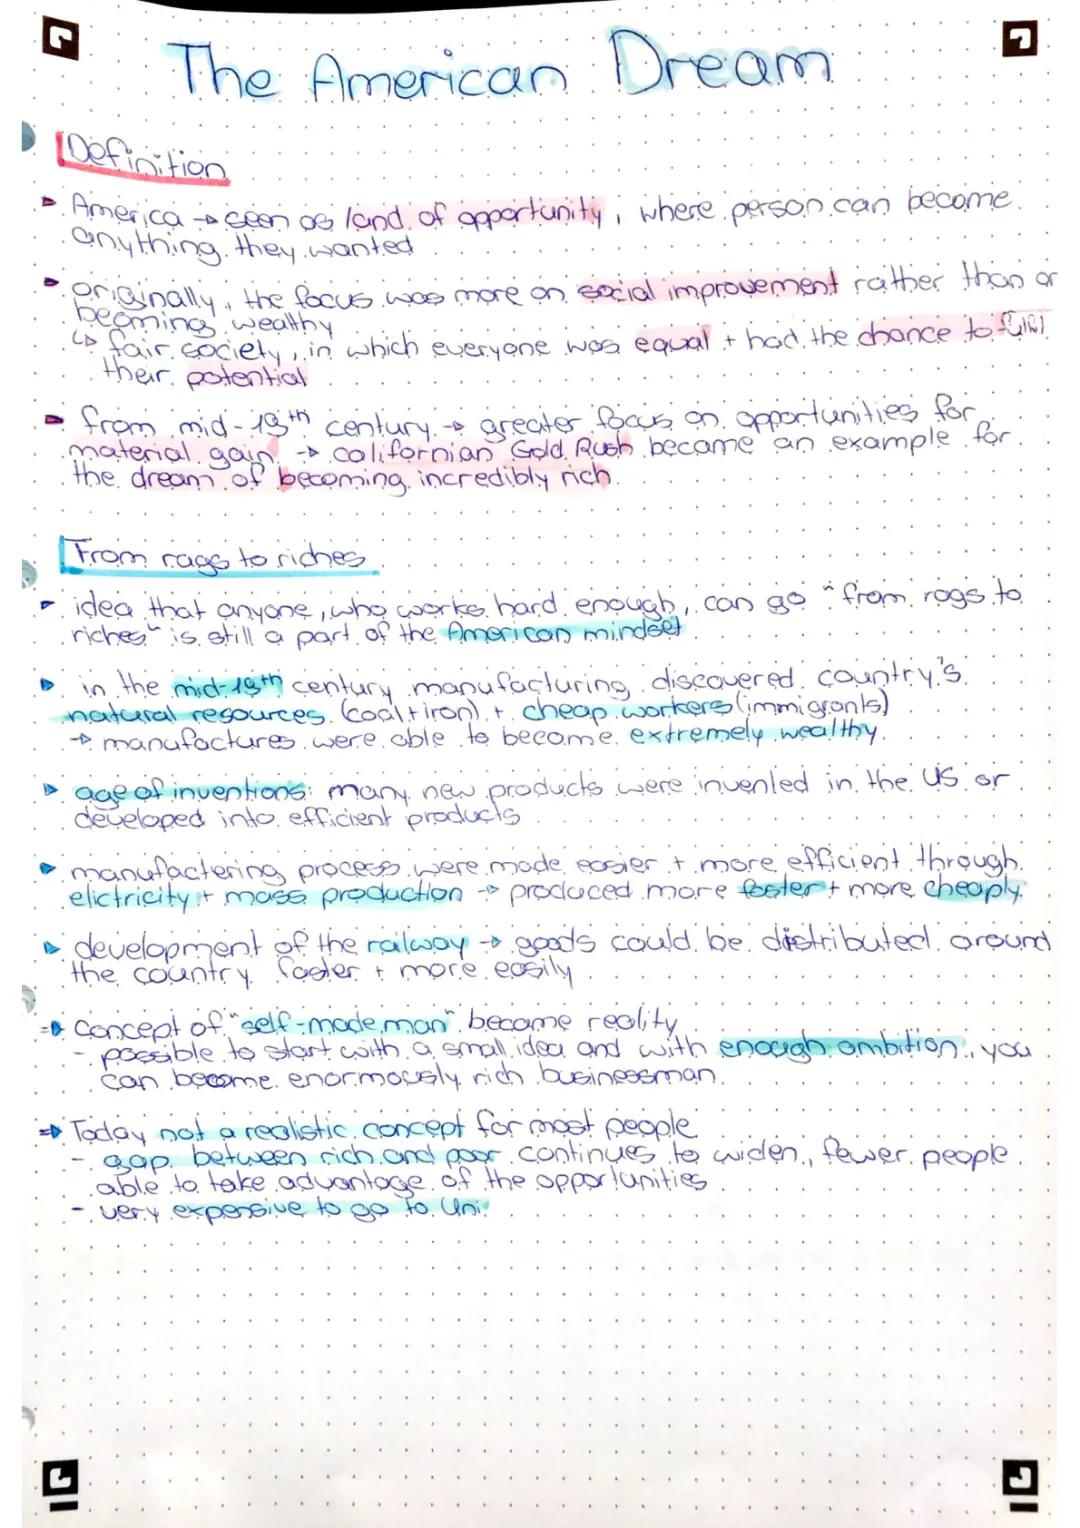 The American Dream
Definition
America → seen as land of opportunity, where person can become
anything they wanted
originally, the focus was more on social improvement rather than on
becoming wealthy
↳ fair society, in which everyone was equal + had the chance to fulfill
their potential
from mid-19th century → greater focus on opportunities for
material gain → californian Gold Rush became an example for
the dream of becoming incredibly rich
From rags to riches
idea that anyone, who works hard enough, can go "from rags to
riches" is still a part of the American mindset
in the mid-19th century manufacturing discovered country's
natural resources (coal + iron) + cheap workers (immigrants)
→ manufactures were able to become extremely wealthy
age of inventions: many new products were invented in the US or
developed into efficient products
manufactering process were made easier + more efficient through
elictricity + mass production → produced more faster + more cheaply
development of the railway → goods could be distributed around
the country faster + more easily
⇒ Concept of "self-made man" became reality
- possible to start with a small idea and with enough ambition, you
can become enormously rich businessman
⇒ Today not a realistic concept for most people
- gap between rich and poor continues to widen, fewer people
able to take advantage of the opportunities
- very expensive to go to Uni